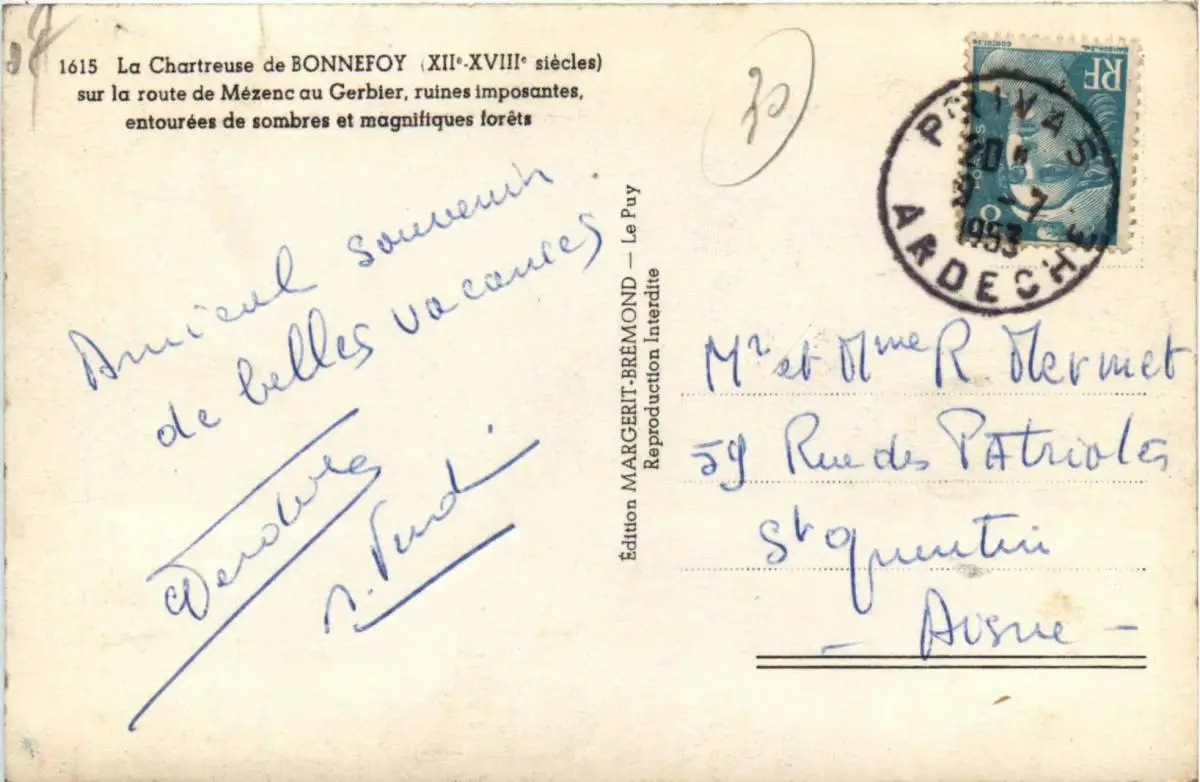 07
1615 La Chartreuse de BONNEFOY (XIIe-XVIIIe siècles)
sur la route de Mézenc au Gerbier, ruines imposantes,
entourées de sombres et magnifiques forêts
30
RF
POSTES
8
PRIVAS
20 H
3 - 7
1953
ARDECHE
Amical souvenir
de belles vacances
Édition MARGERIT-BRÉMOND — Le Puy
Reproduction Interdite
Mr et Mme R Mermet
59 Rue des PAtriotes
St Quentin
— Aisne —